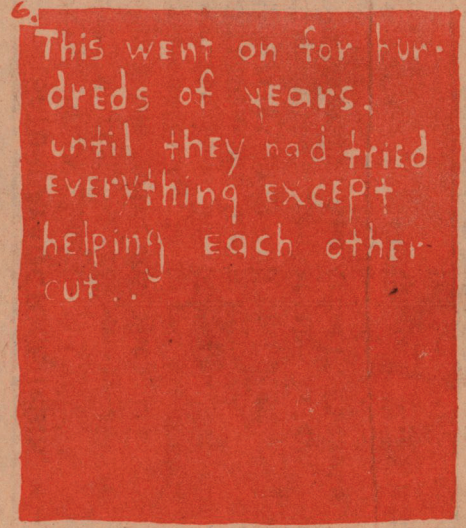 6.
This went on for hun-
dreds of years,
until they had tried
everything except
helping each other
out..